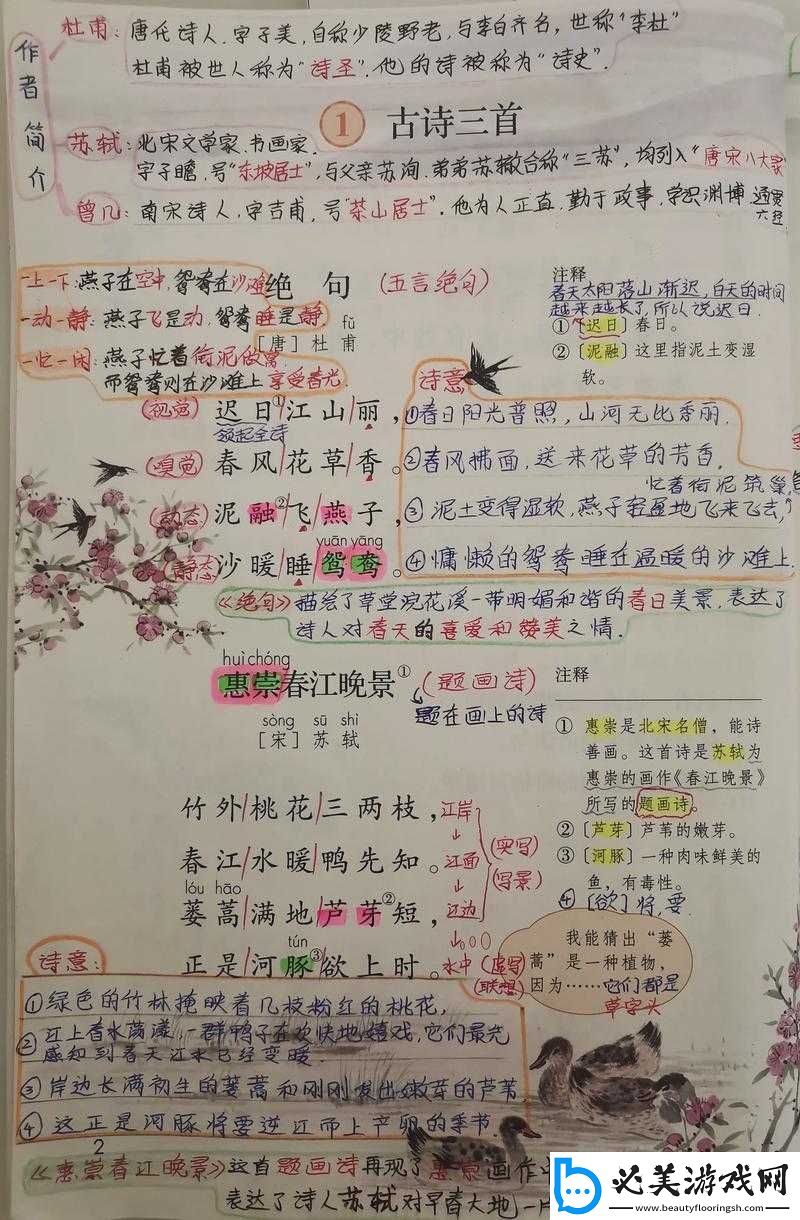 作者简介
杜甫：唐代诗人.字子美,自称少陵野老,与李白齐名,世称"李杜"
杜甫被世人称为"诗圣".他的诗被称为"诗史".
1 古诗三首
苏轼：北宋文学家.书画家.
字子瞻.号"东坡居士",与父亲苏洵.弟弟苏辙合称"三苏",均列入"唐宋八大家"
曾几：南宋诗人,字吉甫,号"茶山居士".他为人正直,勤于政事,学识渊博 通贯
六经
一上一下:燕子在空中,鸳鸯在沙滩
一动一静:燕子飞是动,鸳鸯睡是静
一忙一闲:燕子忙着衔泥做窝
而鸳鸯则在沙滩上享受春光.
绝句 (五言绝句)
fǔ
［唐］杜 甫
注释
春天太阳落山渐迟,白天的时间
越来越长了,所以说迟日.
①〔迟日〕春日。
②〔泥融〕这里指泥土变湿
软。
诗意
(视觉) 迟日①/江山/丽，
领起全诗
(嗅觉) 春风/花草/香。
(动态) 泥融②/飞/燕子，
yuān yāng
(静态) 沙暖/睡/鸳鸯。
①春日阳光普照,山河无比秀丽.
②春风拂面,送来花草的芳香.
忙着衔泥筑巢,
③泥土变得湿软,燕子轻盈地飞来飞去,
④慵懒的鸳鸯睡在温暖的沙滩上.
《绝句》描绘了草堂浣花溪一带明媚和谐的春日美景,表达了
诗人对春天的喜爱和赞美之情.
huì chóng
惠崇春江晚景① (题画诗)
题在画上的诗
sòng sū shì
［宋］苏 轼
竹外/桃花/三两枝，江岸
春江/水暖/鸭先知。江面
lóu hāo
蒌蒿/满地/芦芽②短，江边
tún
正是/河豚③欲上时。水中
(实写)
(写景)
(虚写)
(联想)
注释
①惠崇是北宋名僧，能诗
善画。这首诗是苏轼为
惠崇的画作《春江晚景》
所写的题画诗。
②〔芦芽〕芦苇的嫩芽。
③〔河豚〕一种肉味鲜美的
鱼，有毒性。
④〔欲〕将,要.
我能猜出“蒌
蒿”是一种植物，
因为……它们都是
草字头
诗意:
①绿色的竹林掩映着几枝粉红的桃花,
②江上春水荡漾,一群鸭子在欢快地嬉戏,它们最先
感知到春天江水已经变暖.
③岸边长满初生的蒌蒿和刚刚发出嫩芽的芦苇.
④这正是河豚将要逆江而上产卵的季节.
2
《惠崇春江晚景》这首题画诗再现了惠崇画作中
表达了诗人苏轼对早春大地一片
必美游戏网
www.beautyflooringsh.com